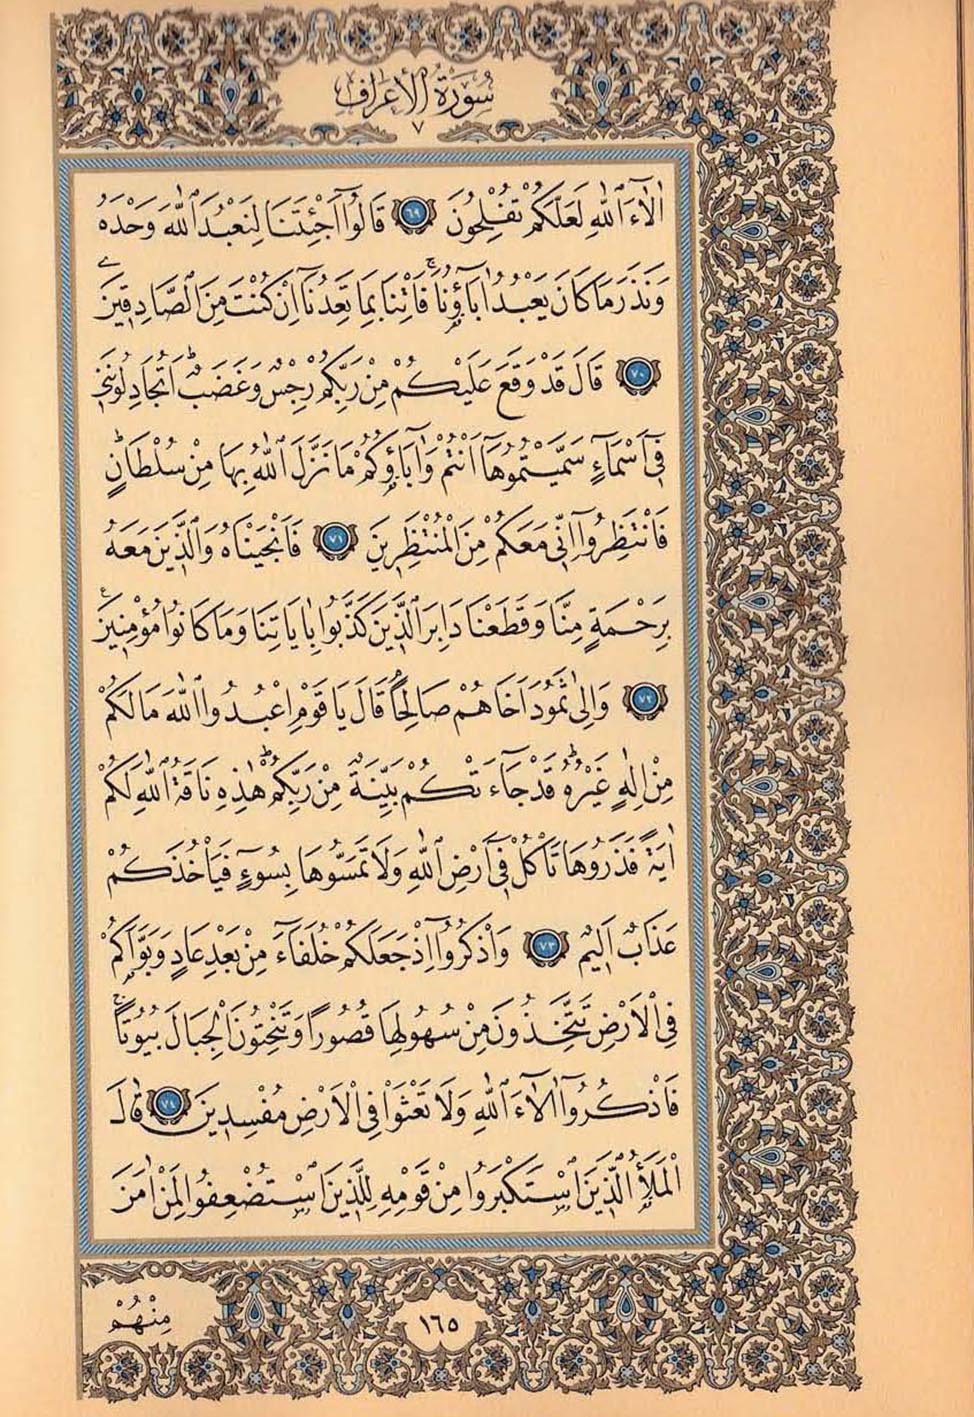 سُورَةُ الْأَعْرَافِ
٧
اٰلَآءَ اللّٰهِ لَعَلَّكُمْ تُفْلِحُونَ ٦٩ قَالُٓوا اَجِئْتَنَا لِنَعْبُدَ اللّٰهَ وَحْدَهُ
وَنَذَرَ مَا كَانَ يَعْبُدُ اٰبَٓاؤُ۬نَاۚ فَاْتِنَا بِمَا تَعِدُنَٓا اِنْ كُنْتَ مِنَ الصَّادِق۪ينَ
٧٠ قَالَ قَدْ وَقَعَ عَلَيْكُمْ مِنْ رَبِّكُمْ رِجْسٌ وَغَضَبٌۜ اَتُجَادِلُونَن۪ي
ف۪ٓي اَسْمَٓاءٍ سَمَّيْتُمُوهَٓا اَنْتُمْ وَاٰبَٓاؤُ۬كُمْ مَا نَزَّلَ اللّٰهُ بِهَا مِنْ سُلْطَانٍۜ
فَانْتَظِرُٓوا اِنّ۪ي مَعَكُمْ مِنَ الْمُنْتَظِر۪ينَ ٧١ فَاَنْجَيْنَاهُ وَالَّذ۪ينَ مَعَهُ
بِرَحْمَةٍ مِنَّا وَقَطَعْنَا دَابِرَ الَّذ۪ينَ كَذَّبُوا بِاٰيَاتِنَا وَمَا كَانُوا مُؤْمِن۪ينَ۟
٧٢ وَاِلٰى ثَمُودَ اَخَاهُمْ صَالِحًاۢ قَالَ يَا قَوْمِ اعْبُدُوا اللّٰهَ مَا لَكُمْ
مِنْ اِلٰهٍ غَيْرُهُۜ قَدْ جَٓاءَتْكُمْ بَيِّنَةٌ مِنْ رَبِّكُمْۜ هٰذِه۪ نَاقَةُ اللّٰهِ لَكُمْ
اٰيَةً فَذَرُوهَا تَاْكُلْ ف۪ٓي اَرْضِ اللّٰهِ وَلَا تَمَسُّوهَا بِسُٓوءٍ فَيَاْخُذَكُمْ
عَذَابٌ اَل۪يمٌ ٧٣ وَاذْكُرُٓوا اِذْ جَعَلَكُمْ خُلَفَٓاءَ مِنْ بَعْدِ عَادٍ وَبَوَّاَكُمْ
فِي الْاَرْضِ تَتَّخِذُونَ مِنْ سُهُولِهَا قُصُورًا وَتَنْحِتُونَ الْجِبَالَ بُيُوتًاۚ
فَاذْكُرُٓوا اٰلَٓاءَ اللّٰهِ وَلَا تَعْثَوْا فِي الْاَرْضِ مُفْسِد۪ينَ ٧٤ قَالَ
الْمَلَأُ الَّذ۪ينَ اسْتَكْبَرُوا مِنْ قَوْمِه۪ لِلَّذ۪ينَ اسْتُضْعِفُوا لِمَنْ اٰمَنَ
مِنْهُمْ
١٦٥